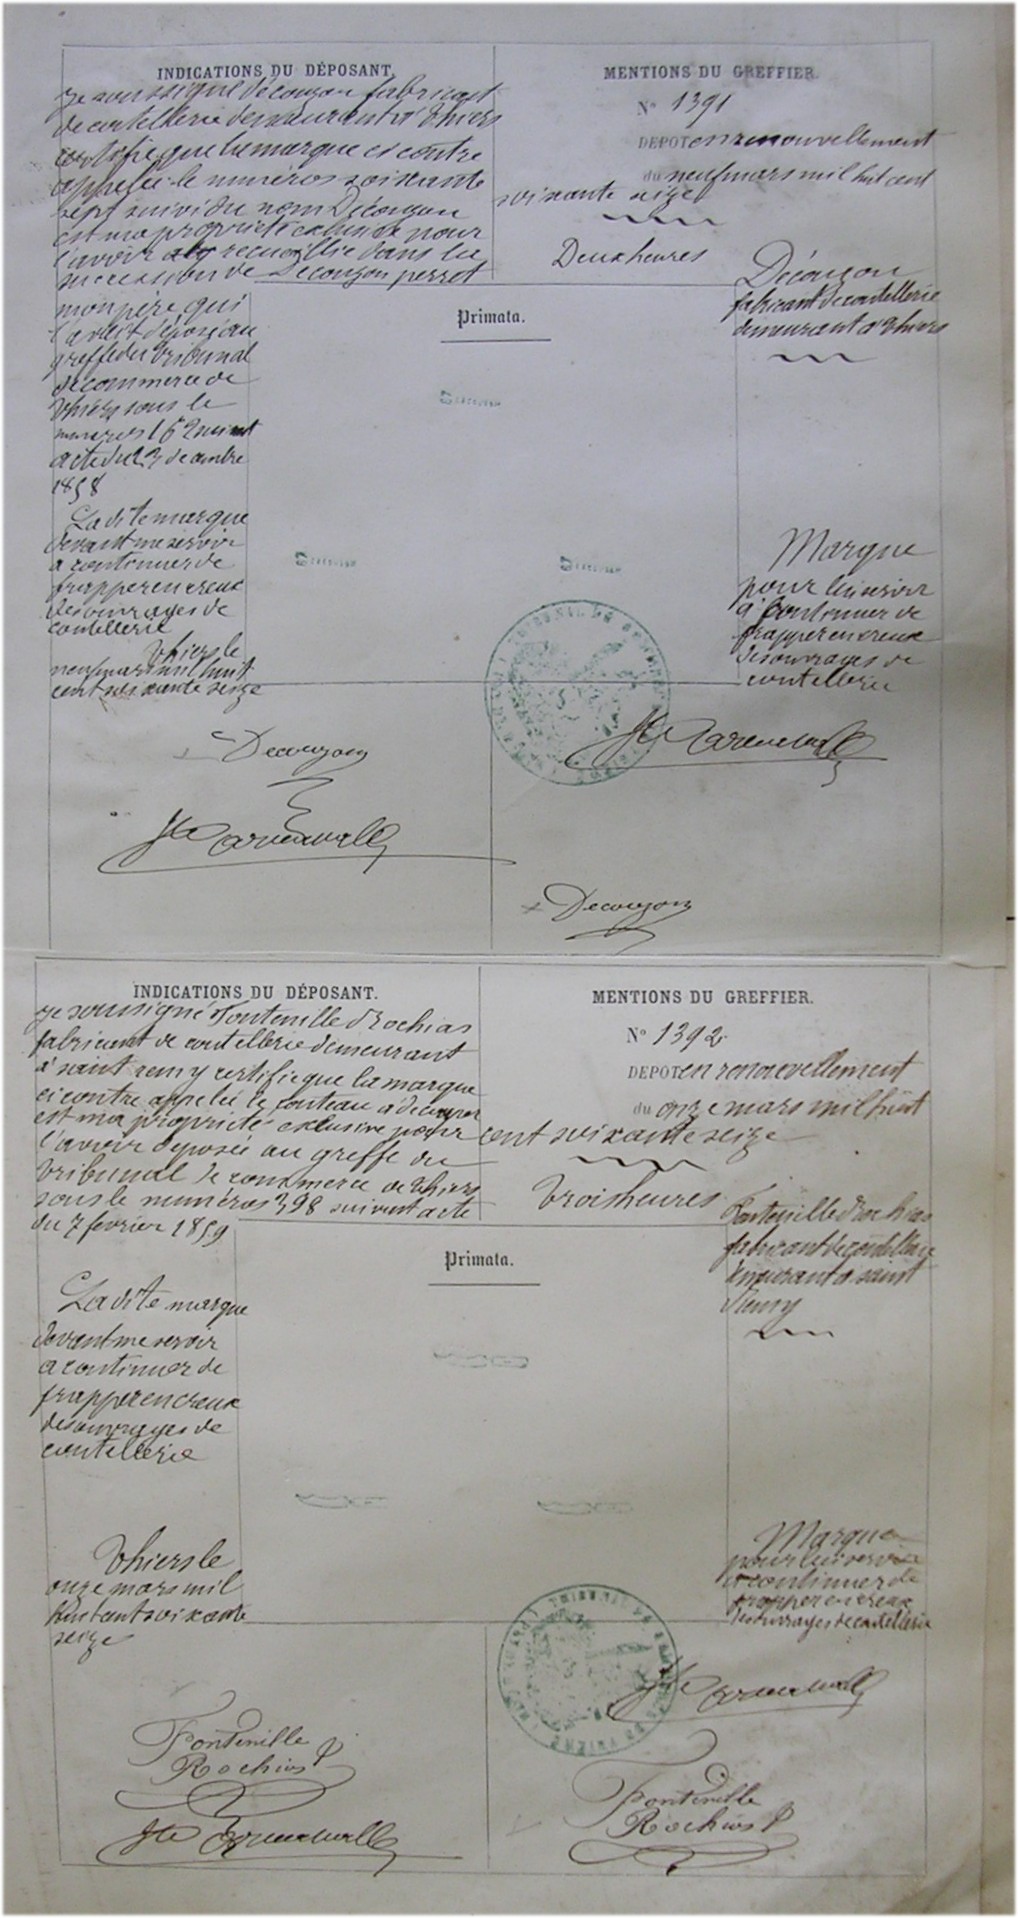 INDICATIONS DU DÉPOSANT.
je soussigné Découzon fabricant
de coutellerie demeurant à Thiers
certifie que la marque ci contre
appelée le numéros soixante
sept suivi du nom Découzon
est ma propriété exclusive pour
l'avoir recueillie dans la
succession de Decouzon perret
mon père qui
l'avait déposé au
greffe du Tribunal
de commerce de
Thiers sous le
numéros 162 suivant
acte du 23 decembre
1858
La dite marque
devant me servir
a continuer de
frapper en creux
des ouvrages de
coutellerie
Thiers le
neuf mars mil huit
cent soixante seize
Decouzon
MENTIONS DU GREFFIER.
N° 1391
DEPOT en renouvellement
du neuf mars mil huit cent
soixante seize
Deux heures
Découzon
fabricant de coutellerie
demeurant à Thiers
Primata.
Marque
pour lui servir
à continuer de
frapper en creux
des ouvrages de
coutellerie
Decouzon
INDICATIONS DU DÉPOSANT.
je soussigné Fontenille Rochias
fabricant de coutellerie demeurant
à saint remy certifie que la marque
ci contre appelée le couteau à découper
est ma propriété exclusive pour
l'avoir déposée au greffe du
Tribunal de commerce de Thiers
sous le numéros 398 suivant acte
du 7 fevrier 1859
La dite marque
devant me servir
a continuer de
frapper en creux
des ouvrages de
coutellerie
Thiers le
onze mars mil
huit cent soixante
seize
Fontenille
Rochias
MENTIONS DU GREFFIER.
N° 1392
DEPOT en renouvellement
du onze mars mil huit
cent soixante seize
Trois heures
Fontenille Rochias
fabricant de coutellerie
demeurant à saint
Remy
Primata.
Marque
pour lui servir
a continuer de
frapper en creux
des ouvrages de coutellerie
Fontenille
Rochias